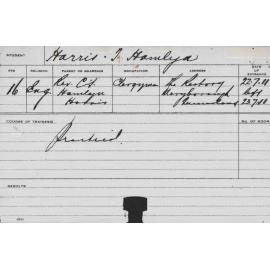 STUDENT Harris - T. Hamlyn
AGE RELIGION PARENT OR GUARDIAN OCCUPATION ADDRESS DATE OF ENTRANCE
16 Eng Rev. C. Clergyman The Rectory 22.7.18
Hamlyn Maryborough left
Harris Queensland
COURSE OF TRAINING NO. OF ROOM
Practical.
RESULTS